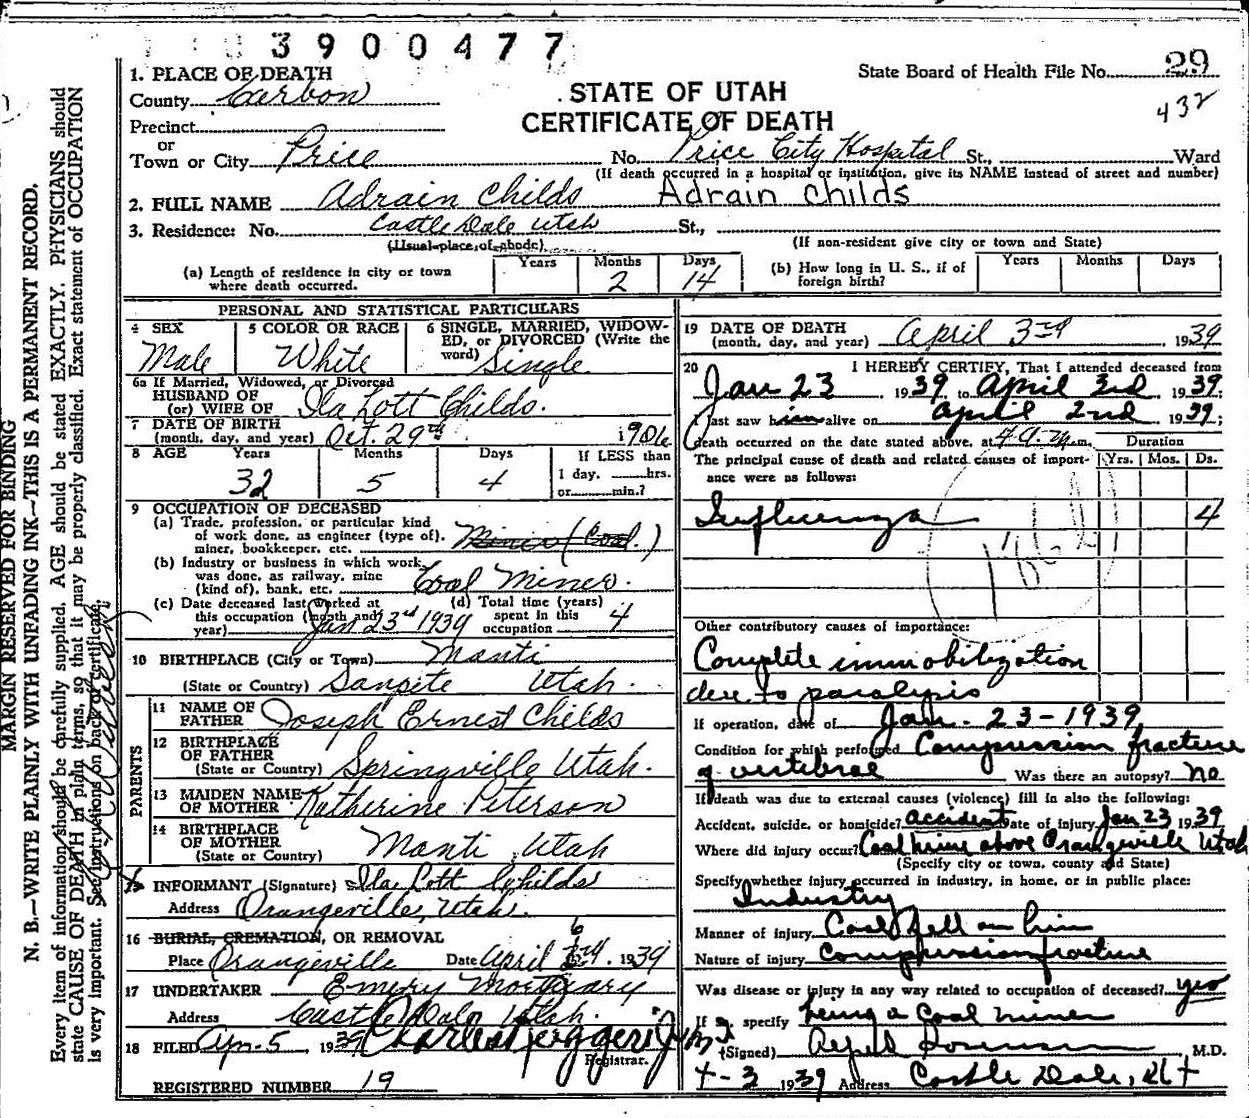 3900477
1. PLACE OF DEATH
State Board of Health File No. 29
County Carbon
STATE OF UTAH
432
CERTIFICATE OF DEATH
Precinct
or
Town or City Price No. Price City Hospital St., Ward
(If death occurred in a hospital or institution, give its NAME instead of street and number)
2. FULL NAME Adrain Childs Adrain Childs
3. Residence: No. Castle Dale Utah St.,
(Usual place of abode) (If non-resident give city or town and State)
(a) Length of residence in city or town where death occurred. Years Months 2 Days 14
(b) How long in U. S., if of foreign birth? Years Months Days
PERSONAL AND STATISTICAL PARTICULARS
4 SEX Male
5 COLOR OR RACE White
6 SINGLE, MARRIED, WIDOWED, or DIVORCED (Write the word) Single
6a If Married, Widowed, or Divorced
HUSBAND OF
(or) WIFE OF Ila Lott Childs.
7 DATE OF BIRTH
(month, day, and year) Oct. 29th 1906
8 AGE Years 32 Months 5 Days 4 If LESS than 1 day, hrs. or min.?
9 OCCUPATION OF DECEASED
(a) Trade, profession, or particular kind of work done, as engineer (type of), miner, bookkeeper, etc. Miner (Coal.)
(b) Industry or business in which work was done, as railway, mine (kind of), bank, etc. Coal Miner.
(c) Date deceased last worked at this occupation (month and year) Jan 23rd 1939
(d) Total time (years) spent in this occupation 4
10 BIRTHPLACE (City or Town) Manti
(State or Country) Sanpete Utah.
PARENTS
11 NAME OF FATHER Joseph Ernest Childs
12 BIRTHPLACE OF FATHER
(State or Country) Springville Utah.
13 MAIDEN NAME OF MOTHER Katherine Peterson
14 BIRTHPLACE OF MOTHER
(State or Country) Manti, Utah
15 INFORMANT (Signature) Ila Lott Childs
Address Orangeville, Utah.
16 BURIAL, CREMATION, OR REMOVAL
Place Orangeville Date April 6 1939
17 UNDERTAKER Emery Mortuary
Address Castle Dale Utah.
18 FILED Apr. 5 1939
Registrar.
REGISTERED NUMBER 19
19 DATE OF DEATH
(month, day, and year) April 3rd 1939
20 I HEREBY CERTIFY, That I attended deceased from
Jan 23 1939 to April 3rd 1939
I last saw him alive on April 2nd 1939;
death occurred on the date stated above, at 4 a.m. Duration
The principal cause of death and related causes of importance were as follows: Yrs. Mos. Ds.
Influenza 4
Other contributory causes of importance:
Complete immobilization
due to paralysis
If operation, date of Jan. 23-1939
Condition for which performed Compression fracture
of vertebrae Was there an autopsy? no
If death was due to external causes (violence) fill in also the following:
Accident, suicide, or homicide? accident Date of injury Jan 23 1939
Where did injury occur? Coal mine above Orangeville Utah
(Specify city or town, county and State)
Specify whether injury occurred in industry, in home, or in public place:
Industry
Manner of injury Coal fell on him
Nature of injury Compression fracture
Was disease or injury in any way related to occupation of deceased? yes
If so, specify being a Coal miner
(Signed) M.D.
4-3 1939 Address Castle Dale, Ut
MARGIN RESERVED FOR BINDING
N. B.—WRITE PLAINLY WITH UNFADING INK—THIS IS A PERMANENT RECORD.
Every item of information should be carefully supplied. AGE should be stated EXACTLY. PHYSICIANS should
state CAUSE OF DEATH in plain terms, so that it may be properly classified. Exact statement of OCCUPATION
is very important. See instructions on back of certificate.